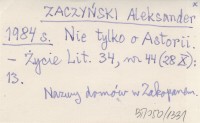 ZACZYŃSKI Aleksander
1984 s. Nie tylko o Astorii.
– Życie Lit. 34, nr 44 (28 X):
13.
Nazwy domów w Zakopanem.
57/250/1331